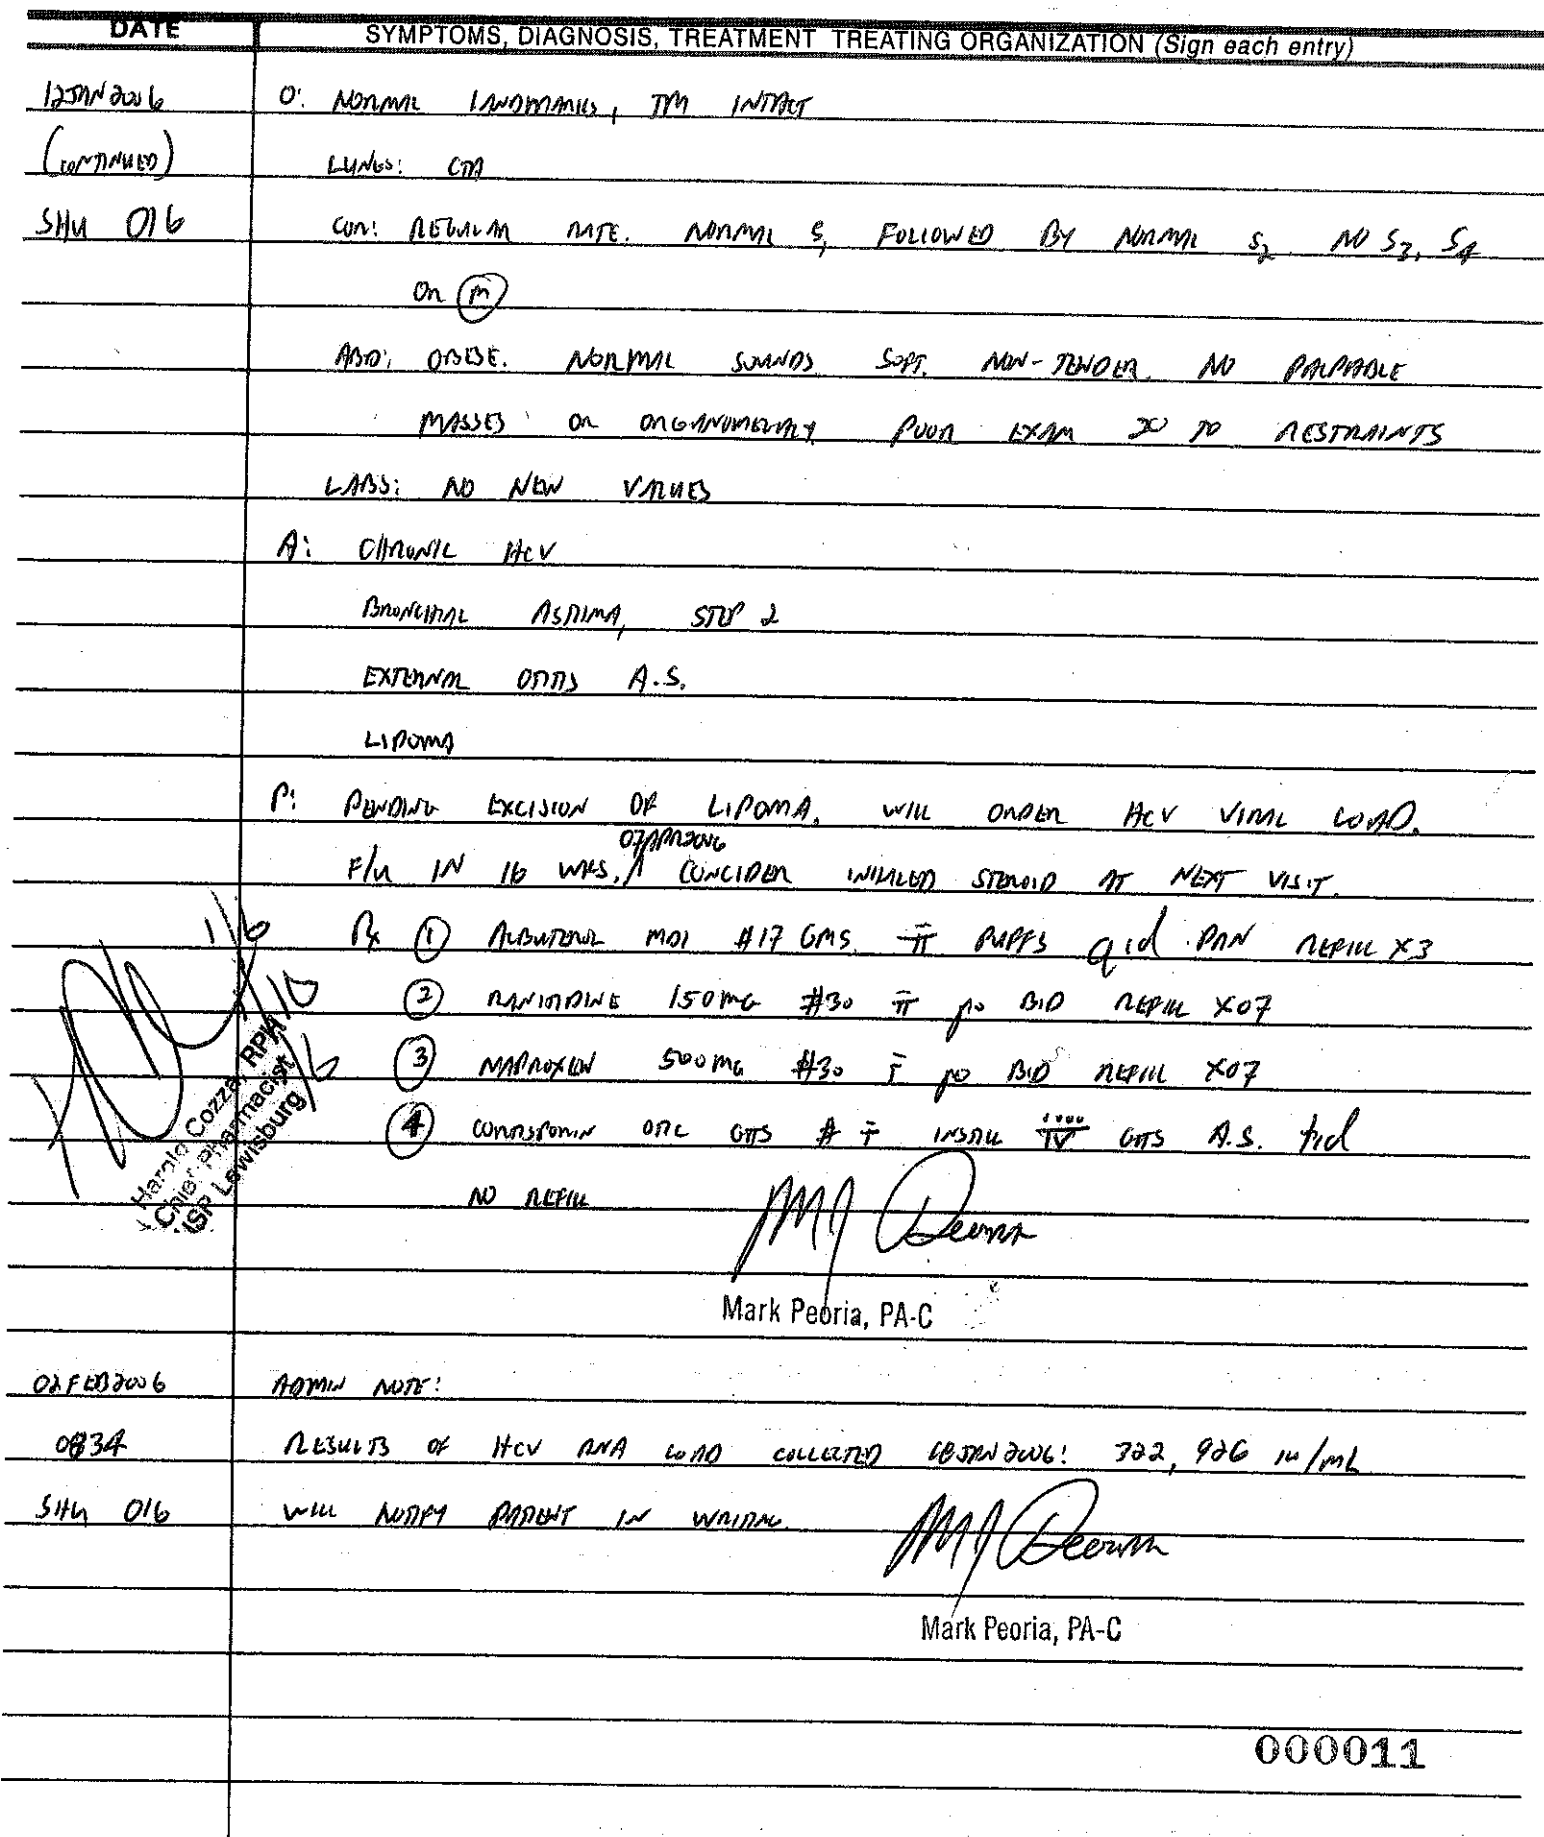 DATE SYMPTOMS, DIAGNOSIS, TREATMENT TREATING ORGANIZATION (Sign each entry)
12JAN2006 O: NORMAL LANDMARKS, TM INTACT
(CONTINUED) LUNGS: CTA
SHU 016 COR: REGULAR RATE. NORMAL S1 FOLLOWED BY NORMAL S2 NO S3, S4
OR (M)
ABD: OBESE. NORMAL SOUNDS SOFT. NON-TENDER. NO PALPABLE
MASSES OR ORGANOMEGALY POOR EXAM TO RESTRAINTS
LABS: NO NEW VALUES
A: CHRONIC HCV
BRONCHIAL ASTHMA, STEP 2
EXTERNAL OTITIS A.S.
LIPOMA
P: PENDING EXCISION OF LIPOMA. WILL ORDER HCV VIRAL LOAD.
07APR2006
F/U IN 16 WKS. CONCIDER INHALED STEROID AT NEXT VISIT.
Rx (1) ALBUTEROL MDI #17 GMS. ii PUFFS qid PRN REFILL X3
(2) RANITIDINE 150MG #30 po BID REFILL X07
(3) NAPROXEN 500MG #30 i po BID REFILL X07
(4) OTIC GTTS # i INSTILL IV GTTS A.S. tid
NO REFILL
Harold Cozza, RPH
Chief Pharmacist
USP Lewisburg
Mark Peoria, PA-C
02FEB2006 ADMIN NOTE:
0834 RESULTS OF HCV RNA LOAD COLLECTED 18JAN2006: 322,926 IU/mL
SHU 016 WILL NOTIFY PATIENT IN WRITING.
Mark Peoria, PA-C
000011